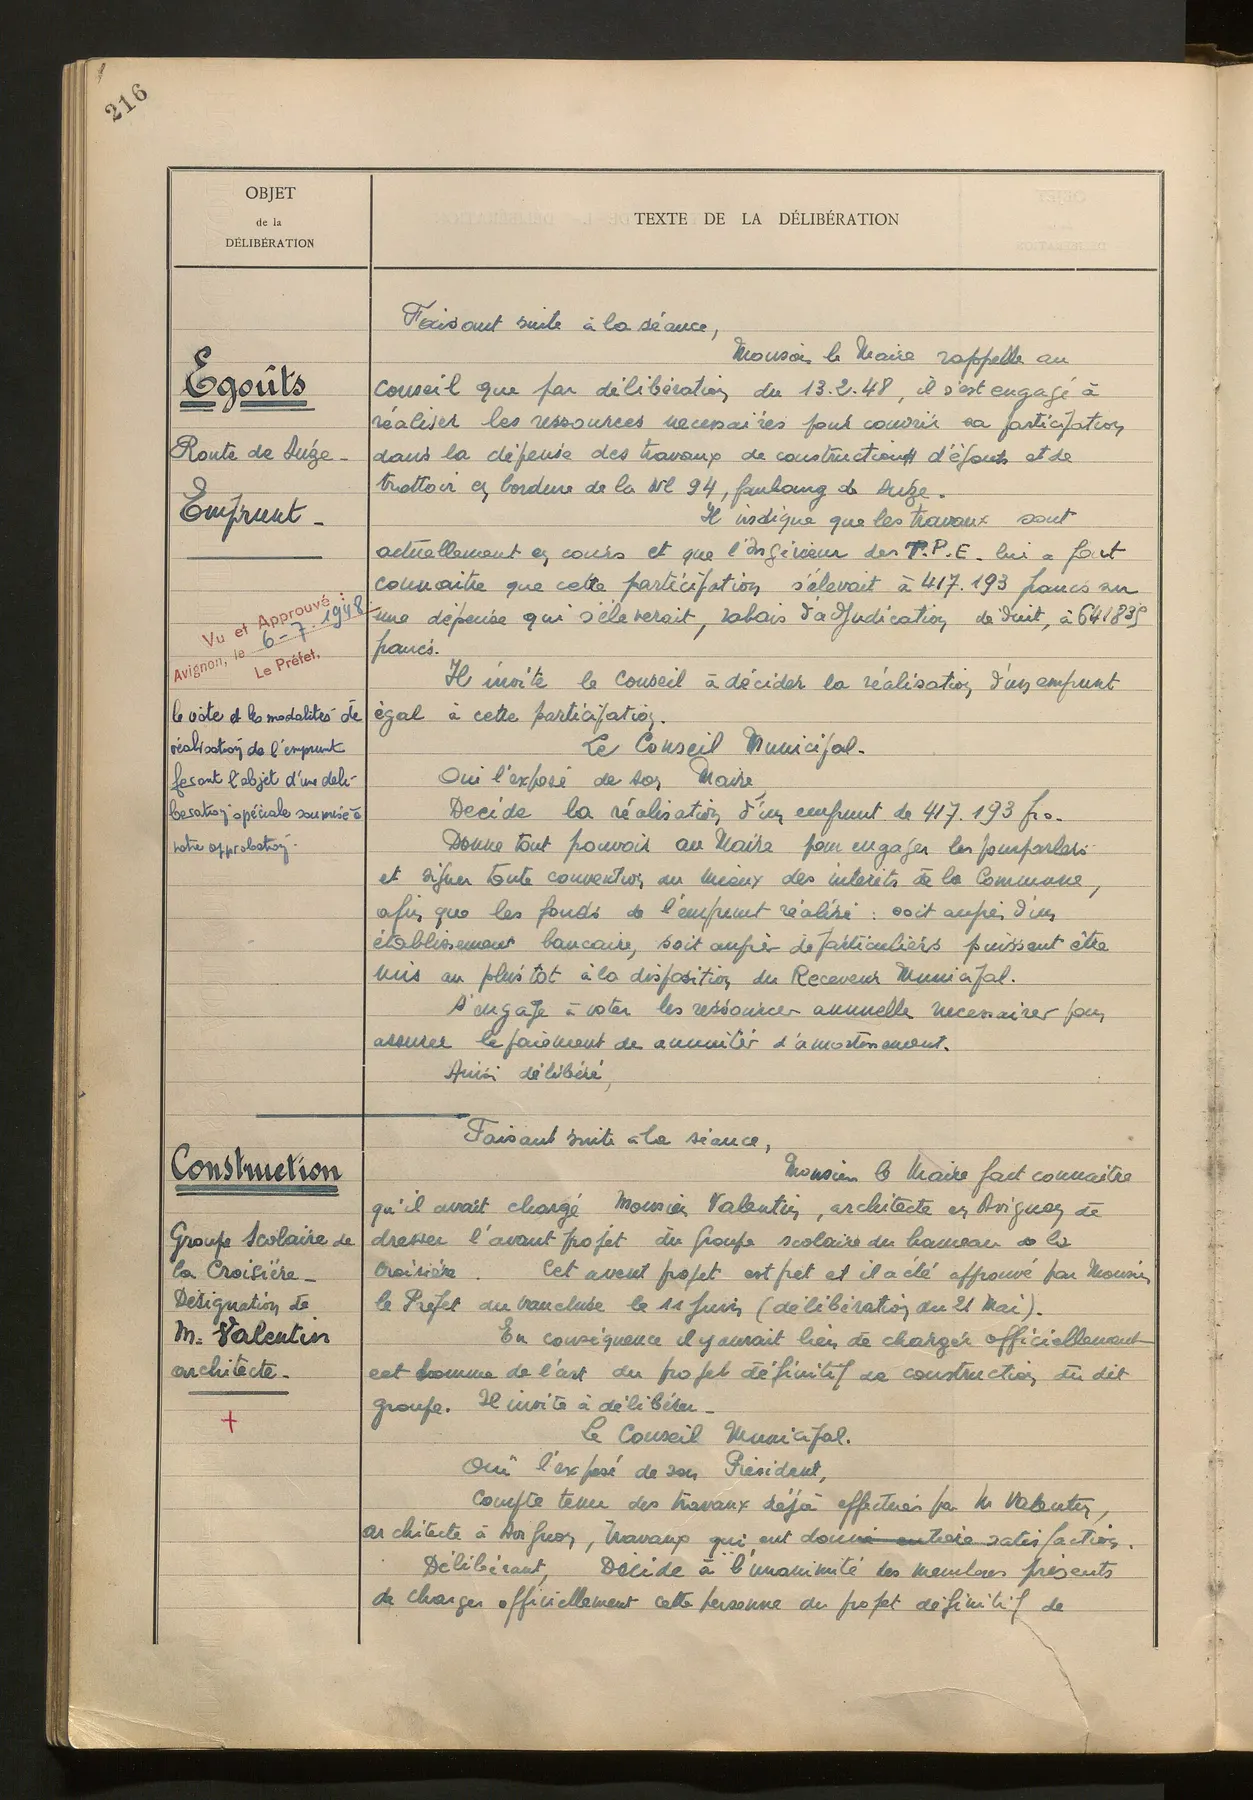 216
OBJET
de la
DÉLIBÉRATION
TEXTE DE LA DÉLIBÉRATION
Egoûts
Route de Suze -
Emprunt -
Vu et Approuvé :
Avignon, le 6-7.1948
Le Préfet.
le vote et les modalités de
réalisation de l'emprunt
feront l'objet d'une déli-
bération spéciale soumise à
notre approbation.
Faisant suite à la séance,
Monsieur le Maire rappelle au
conseil que par délibération du 13.2.48, il s'est engagé à
réaliser les ressources necessaires pour couvrir sa participation
dans la dépense des travaux de construction d'égouts et de
trottoir en bordure de la Nle 94, faubourg de Suze.
Il indique que les travaux sont
actuellement en cours et que l'Ingénieur des T.P.E. lui a fait
connaitre que cette participation s'élevait à 417.193 francs sur
une dépense qui s'éleverait, rabais d'adjudication déduit, à 641839
francs.
Il invite le Conseil à décider la réalisation d'un emprunt
égal à cette participation.
Le Conseil Municipal.
Oui l'exposé de son Maire
Decide la réalisation d'un emprunt de 417.193 frs.
Donne tout pouvoir au Maire pour engager les pourparlers
et signer toute convention au mieux des interêts de la Commune,
afin que les fonds de l'emprunt réalisé : soit auprès d'un
établissement bancaire, soit auprès de particuliers puissent être
mis au plus tôt à la disposition du Receveur Municipal.
S'engage à voter les ressources annuelle necessaires pour
assurer le paiement de annuités d'amortissement.
Ainsi délibéré,
Construction
Groupe Scolaire de
la Croisière -
Désignation de
M. Valentin
architecte -
+
Faisant suite à la séance,
Monsieur le Maire fait connaitre
qu'il avait chargé Monsieur Valentin, architecte en Avignon de
dresser l'avant projet du Groupe scolaire du hameau de la
Croisière. Cet avant projet est prêt et il a été approuvé par Monsieur
le Préfet du Vaucluse le 11 Juin (délibération du 21 Mai).
En conséquence il y aurait lieu de charger officiellement
cet homme de l'art du projet définitif de construction du dit
groupe. Il invite à délibérer -
Le Conseil Municipal.
Ouï l'exposé de son Président,
Compte tenu des travaux déjà effectués par M Valentin,
architecte à Avignon, travaux qui ont donné entière satisfaction.
Délibérant, Décide à l'unanimité des membres présents
de charger officiellement cette personne du projet définitif de